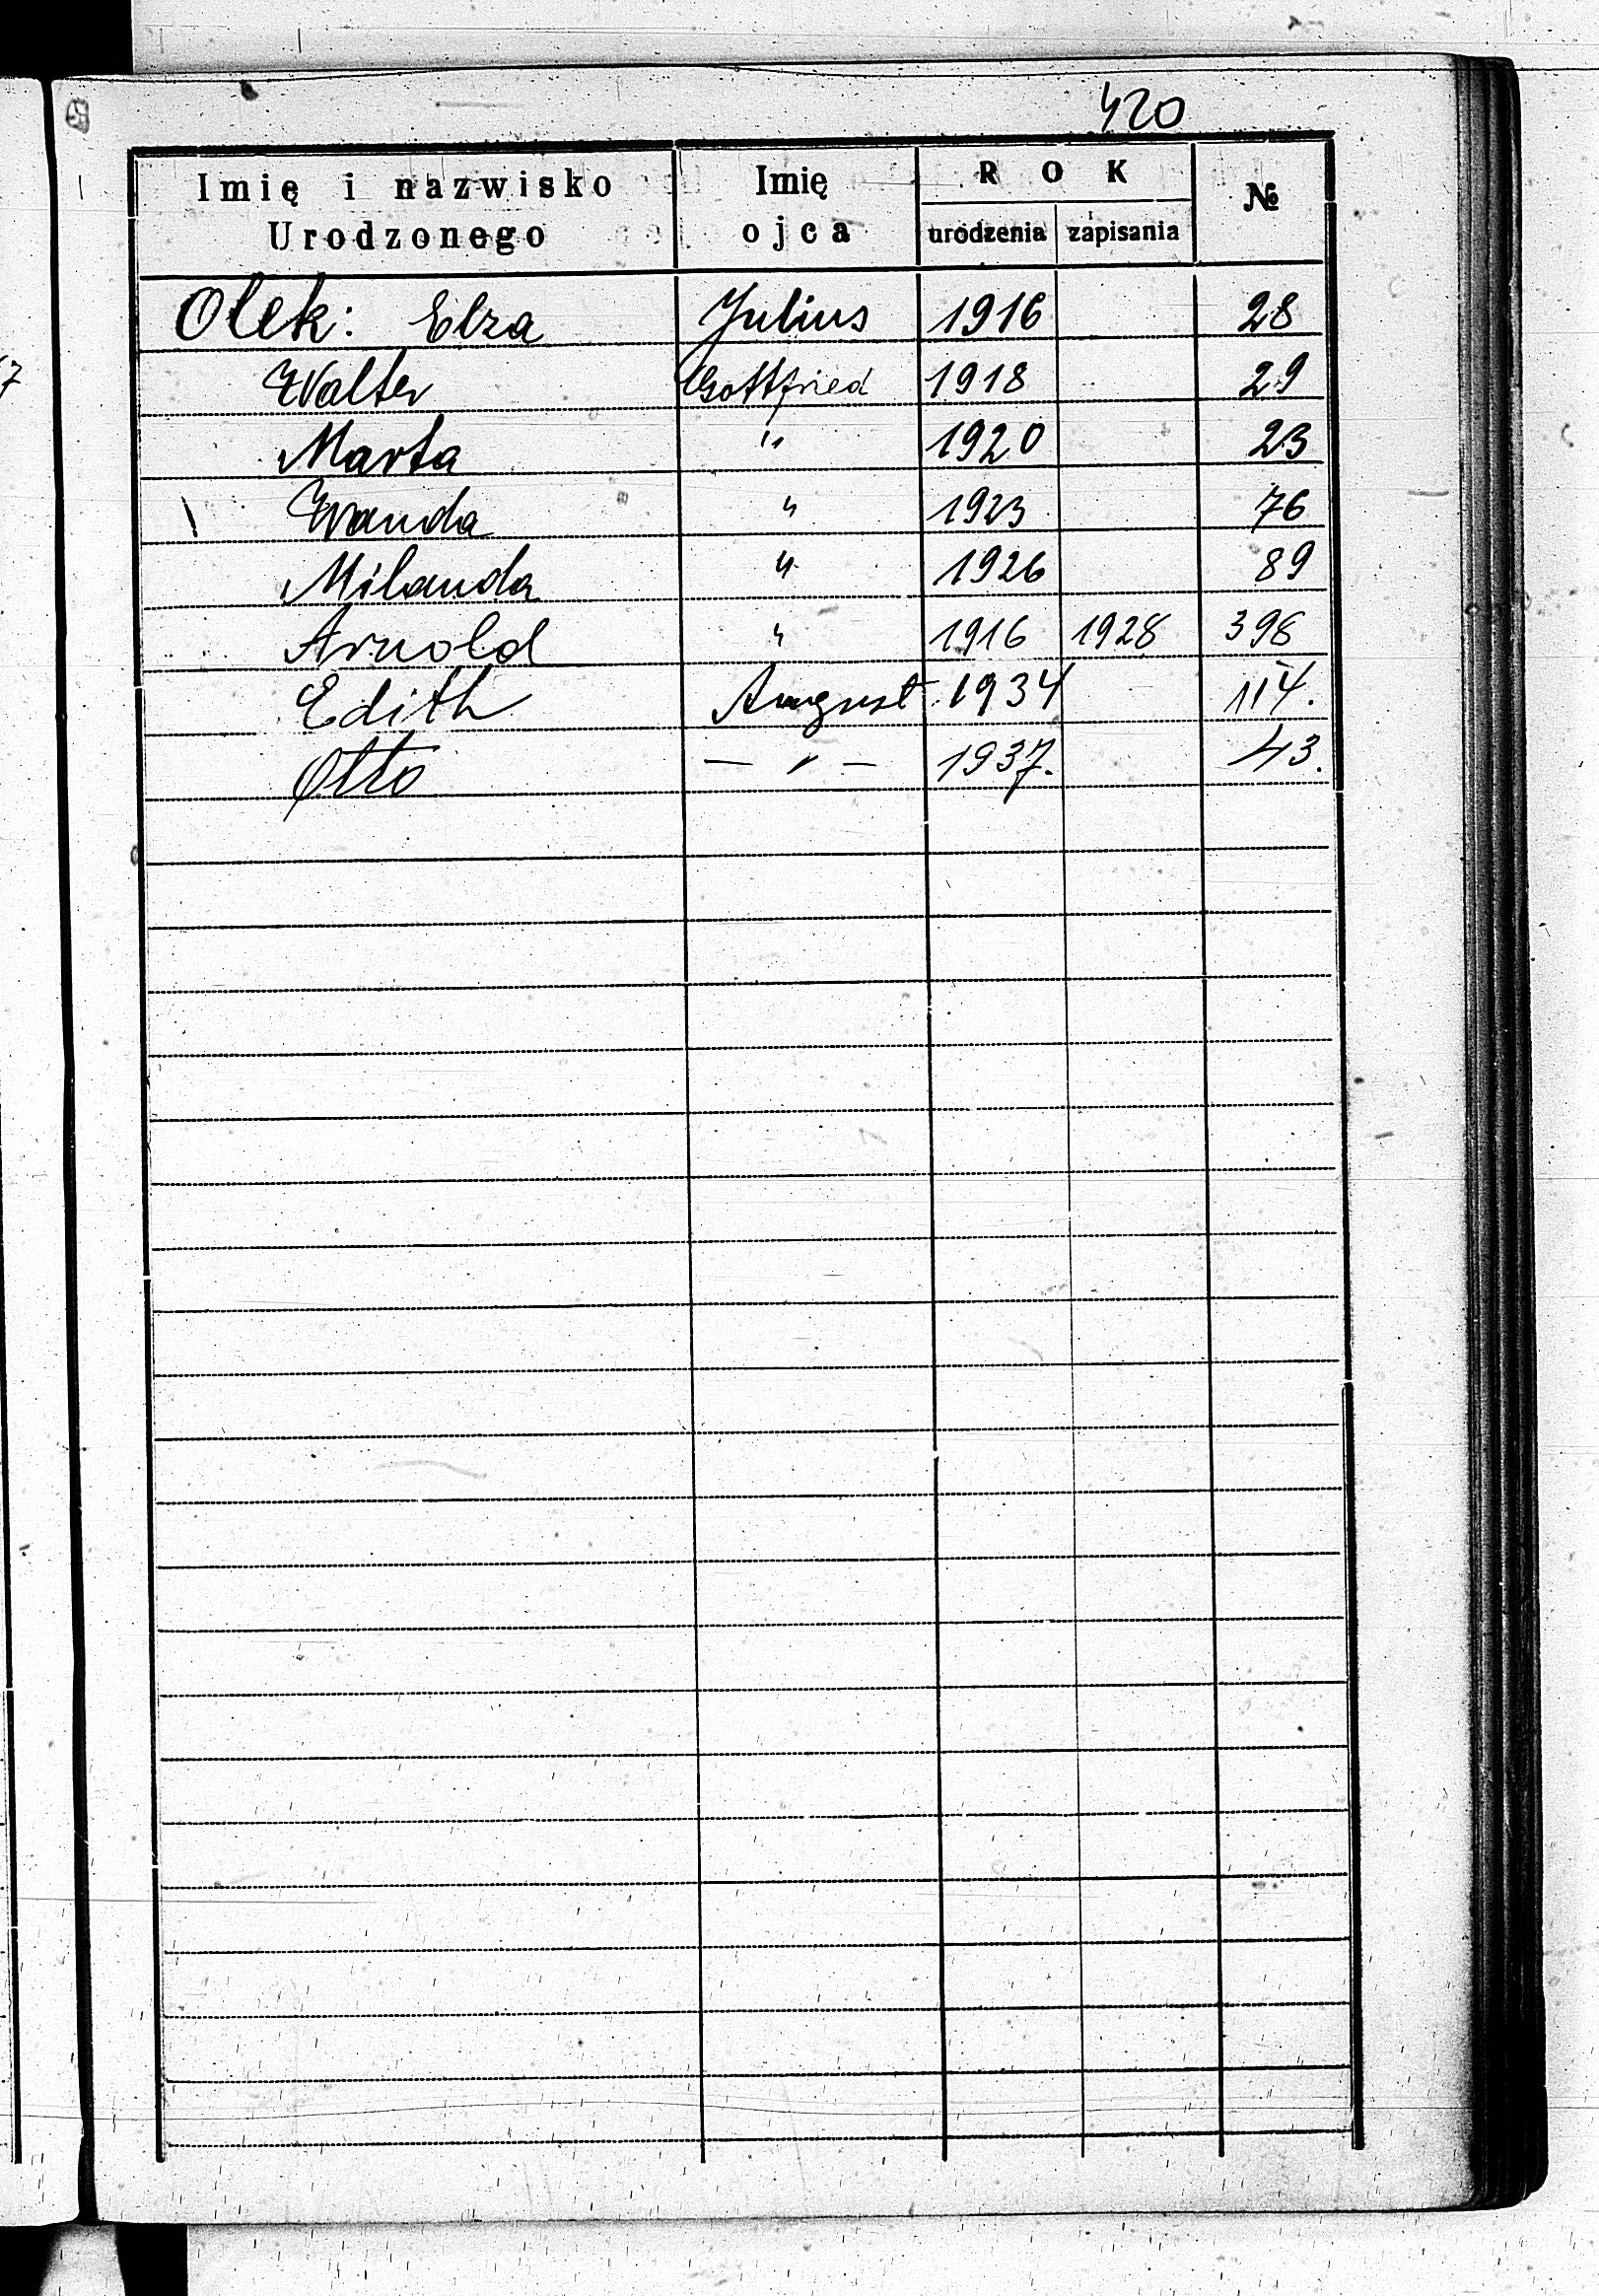 420
Imię i nazwisko Urodzonego Imię ojca ROK urodzenia zapisania №
Olek: Elza Julius 1916 28
Walter Gottfried 1918 29
Marta " 1920 23
Wanda " 1923 76
Milanda " 1926 89
Arnold " 1916 1928 398
Edith August 1934 114.
Otto — " — 1937. 43.